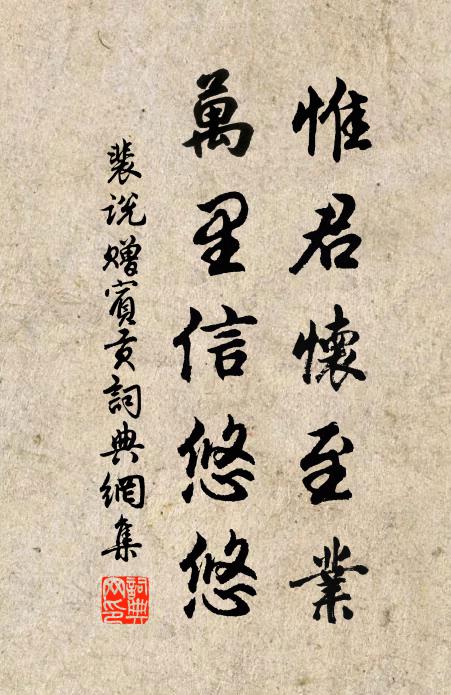 惟君懷至業
萬里信悠悠
裴說贈賓貢詞典網集
詞典
網印